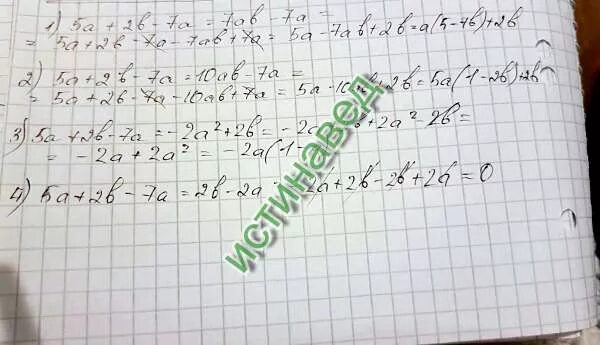 1) 5a + 2b - 7a = 7ab - 7a =
= 5a + 2b - 7a - 7ab + 7a = 5a - 7ab + 2b = a(5-7b)+2b
2) 5a + 2b - 7a = 10ab - 7a =
= 5a + 2b - 7a - 10ab + 7a = 5a - 10ab + 2b = 5a(1-2b)+2b
3) 5a + 2b - 7a = -2a² + 2b = -2a + 2a² 2b =
= -2a + 2a² = -2a(1-
4) 5a + 2b - 7a = 2b - 2a 2a + 2b - 2b + 2a = 0
ИСТИНАВЕД